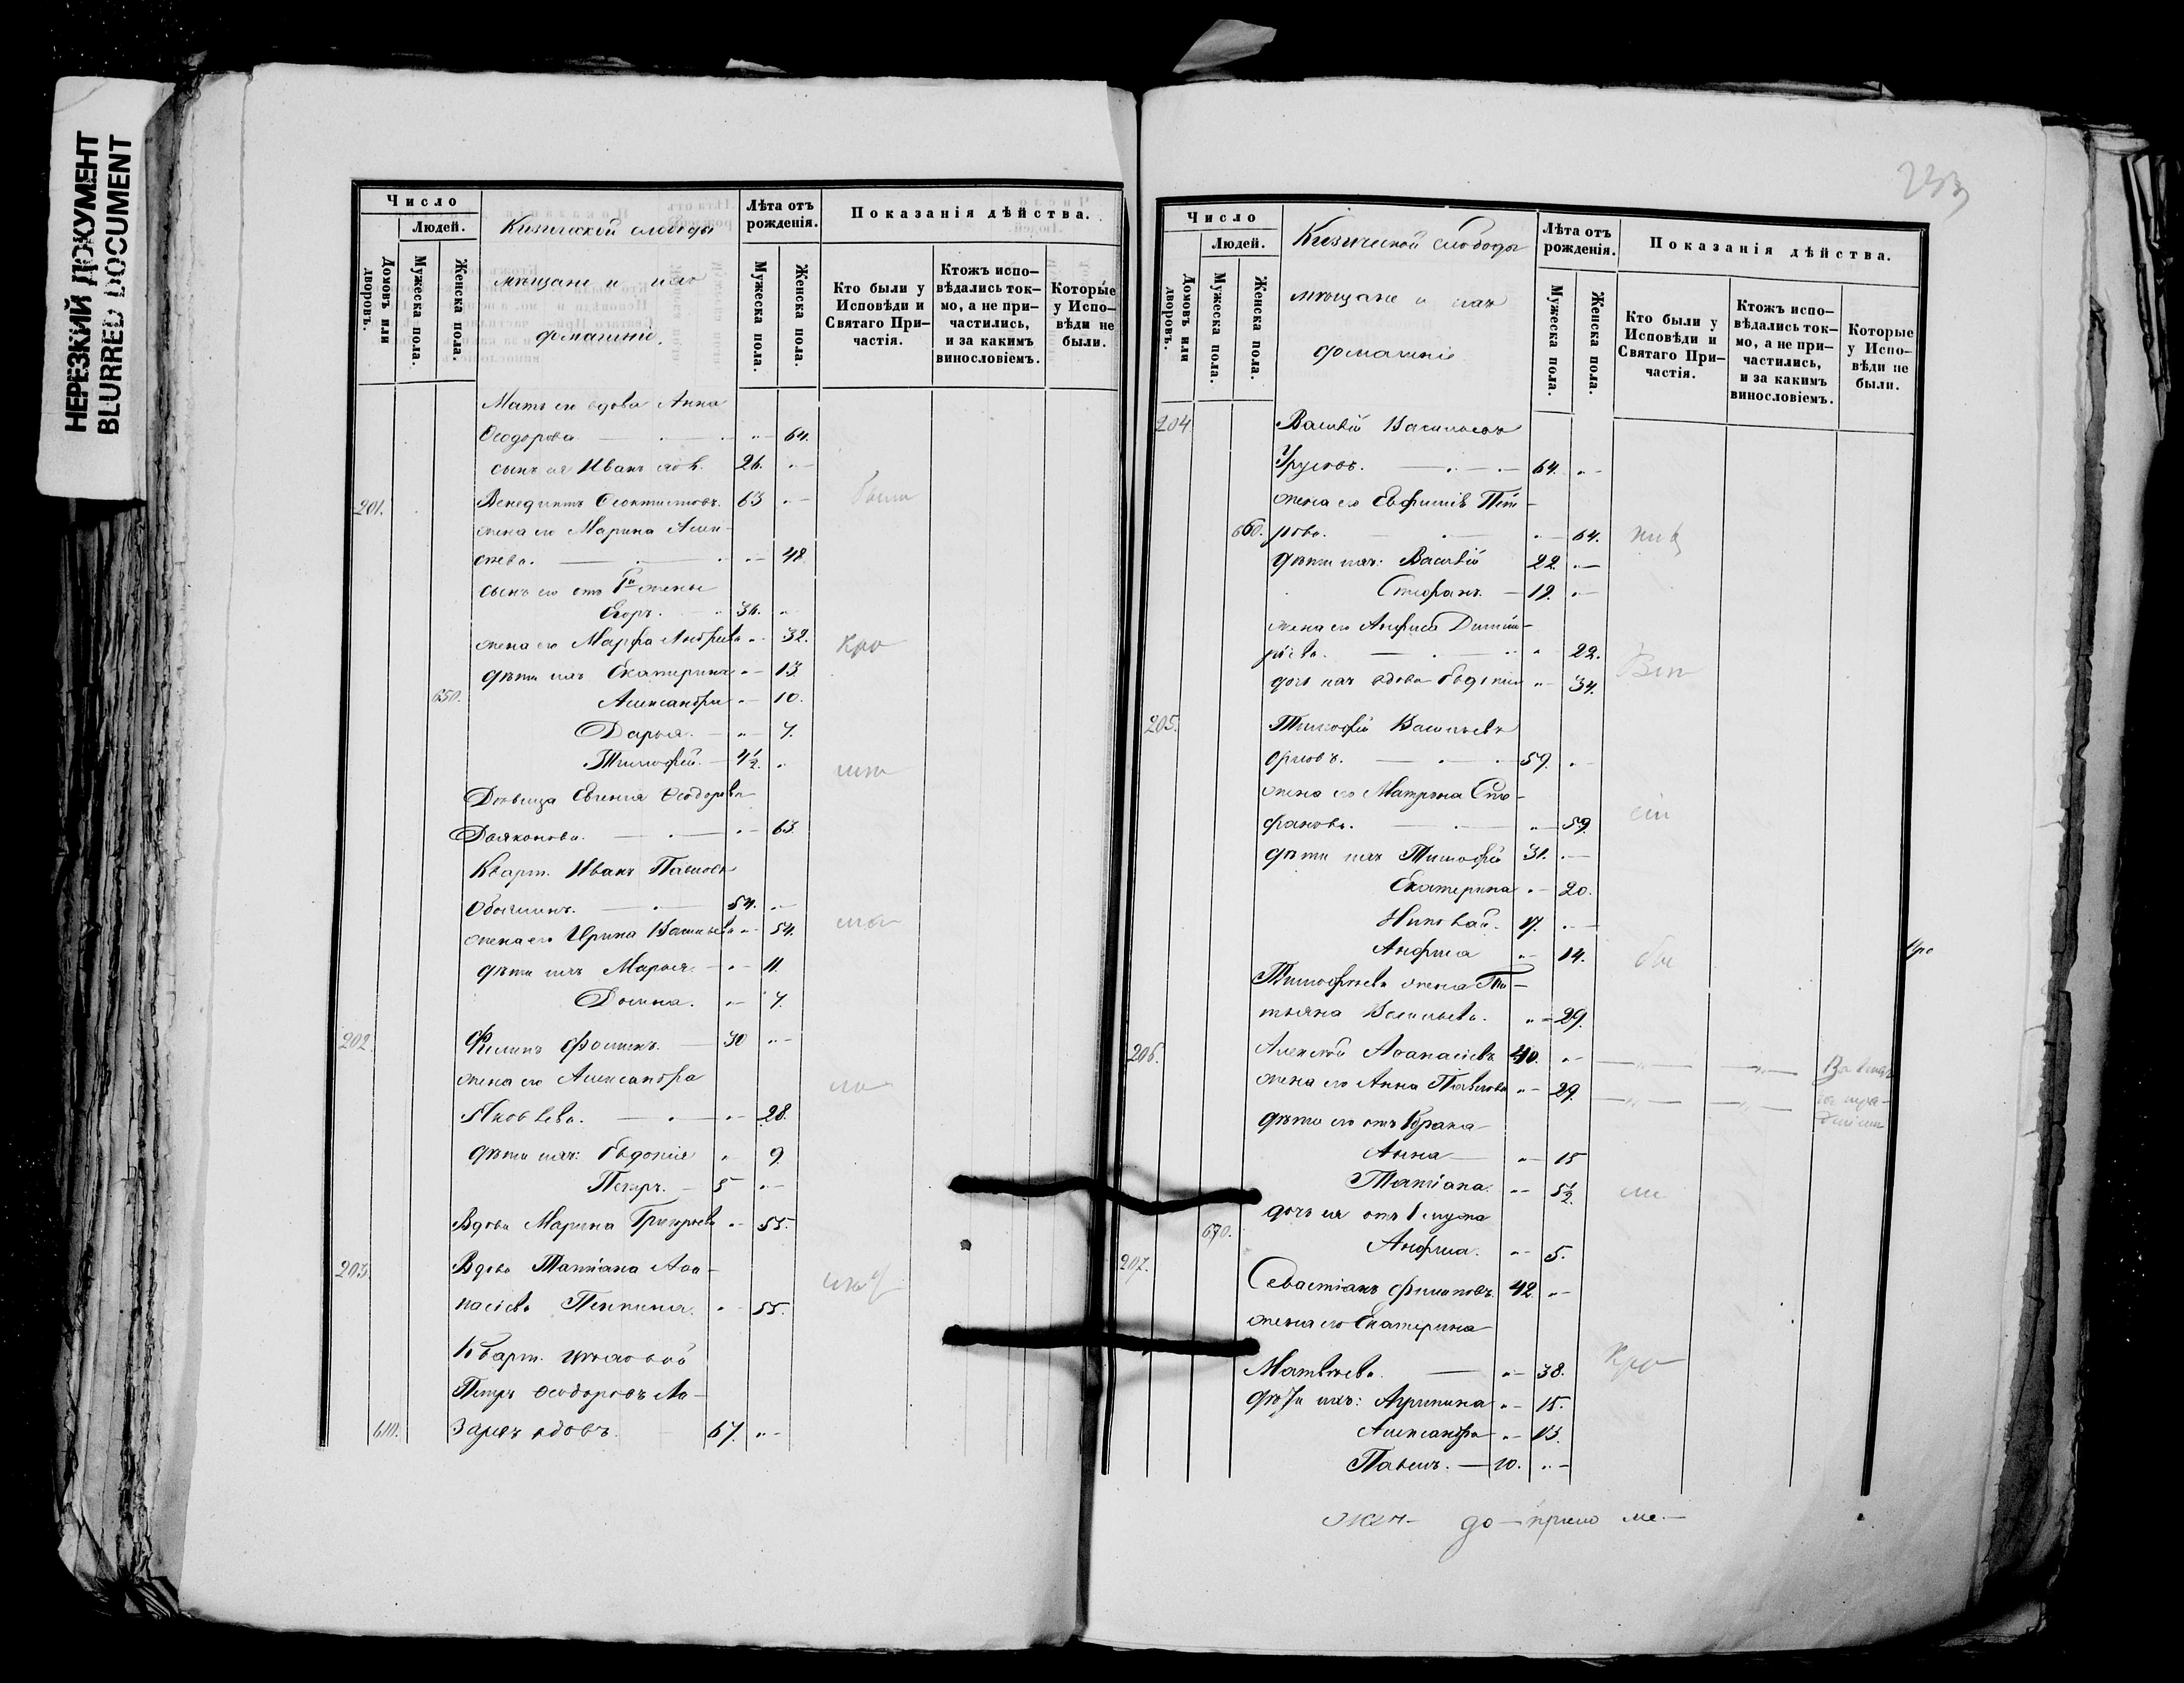 НЕРЕЗКИЙ ДОКУМЕНТ
BLURRED DOCUMENT
Число
Людей.
Домовъ или дворовъ.
Мужеска пола.
Женска пола.
Кизической слободы
мещане и ихъ
домашніе.
Лѣта отъ рожденія.
Мужеска пола.
Женска пола.
Показанія дѣйства.
Кто были у Исповѣди и Святаго При-
частія.
Ктожъ испо-
вѣдались ток-
мо, а не при-
частились,
и за какимъ
винословіемъ.
Которые
у Испо-
вѣди не
были.
Мать его вдова Анна
Ѳеодорова 64.
сынъ ея Иванъ 26.
201. Венедиктъ Ѳеоктистовъ. 63 были
жена его Марина Алек-
сеева. 48
сынъ его отъ 1й жены
Егоръ. 36.
жена его Марфа Андреева 32. кро
дѣти ихъ Екатерина 13
650. Александра 10.
Дарья. 7.
Тимофей. 4½.
Девица Евгенія Ѳеодорова
Дьяконова. 63
Кварт. Иванъ Павловъ
54.
жена его Ирина Васильева 54.
дѣти ихъ Марья. 11.
Домна. 7.
202. Филипъ Фоминъ. 30
жена его Александра
Яковлева. 28.
дѣти ихъ: Евдокія 9.
Петръ. 5
Вдова Марина Григорьева 55.
203. Вдова Татіана Аѳа-
насіева 55.
Кварт.
Петръ Ѳеодоровъ Ла-
610. заревъ вдовъ. 67.
233
Число
Людей.
Домовъ или дворовъ.
Мужеска пола.
Женска пола.
Кизической слободы
мещане и ихъ
домашніе
Лѣта отъ рожденія.
Мужеска пола.
Женска пола.
Показанія дѣйства.
Кто были у
Исповѣди и
Святаго При-
частія.
Ктожъ испо-
вѣдались ток-
мо, а не при-
частились,
и за какимъ
винословіемъ.
Которые
у Испо-
вѣди не
были.
204. Василій Васильевъ
Урусовъ. 64.
жена его Евфимія Пет-
660. рова. 64.
дѣти ихъ: Василій 22.
Стефанъ. 19.
жена его Анфиса Димит-
ріева. 22.
дочь ихъ вдова Евдокія 34.
205. Тимофей Васильевъ
Орловъ. 59.
жена его Матрена Сте-
фанова. 59.
дѣти ихъ Тимофей 31.
Екатерина 20.
Николай. 17.
Анфиса 14.
Тимофеева жена Та-
тьяна Васильева. 29.
206. Алексей Аѳанасіевъ 40.
жена его Анна Павлова 29.
дѣти его отъ 1 брака
Анна 15
Татіана. 5½.
дочь ея отъ 1 мужа
670. Анфиса. 5.
207. Севастіанъ Филиповъ. 42.
жена его Екатерина
Матвеева. 38. кро
дѣти ихъ: Агрипина 15.
Александра 13.
Павелъ. 10.